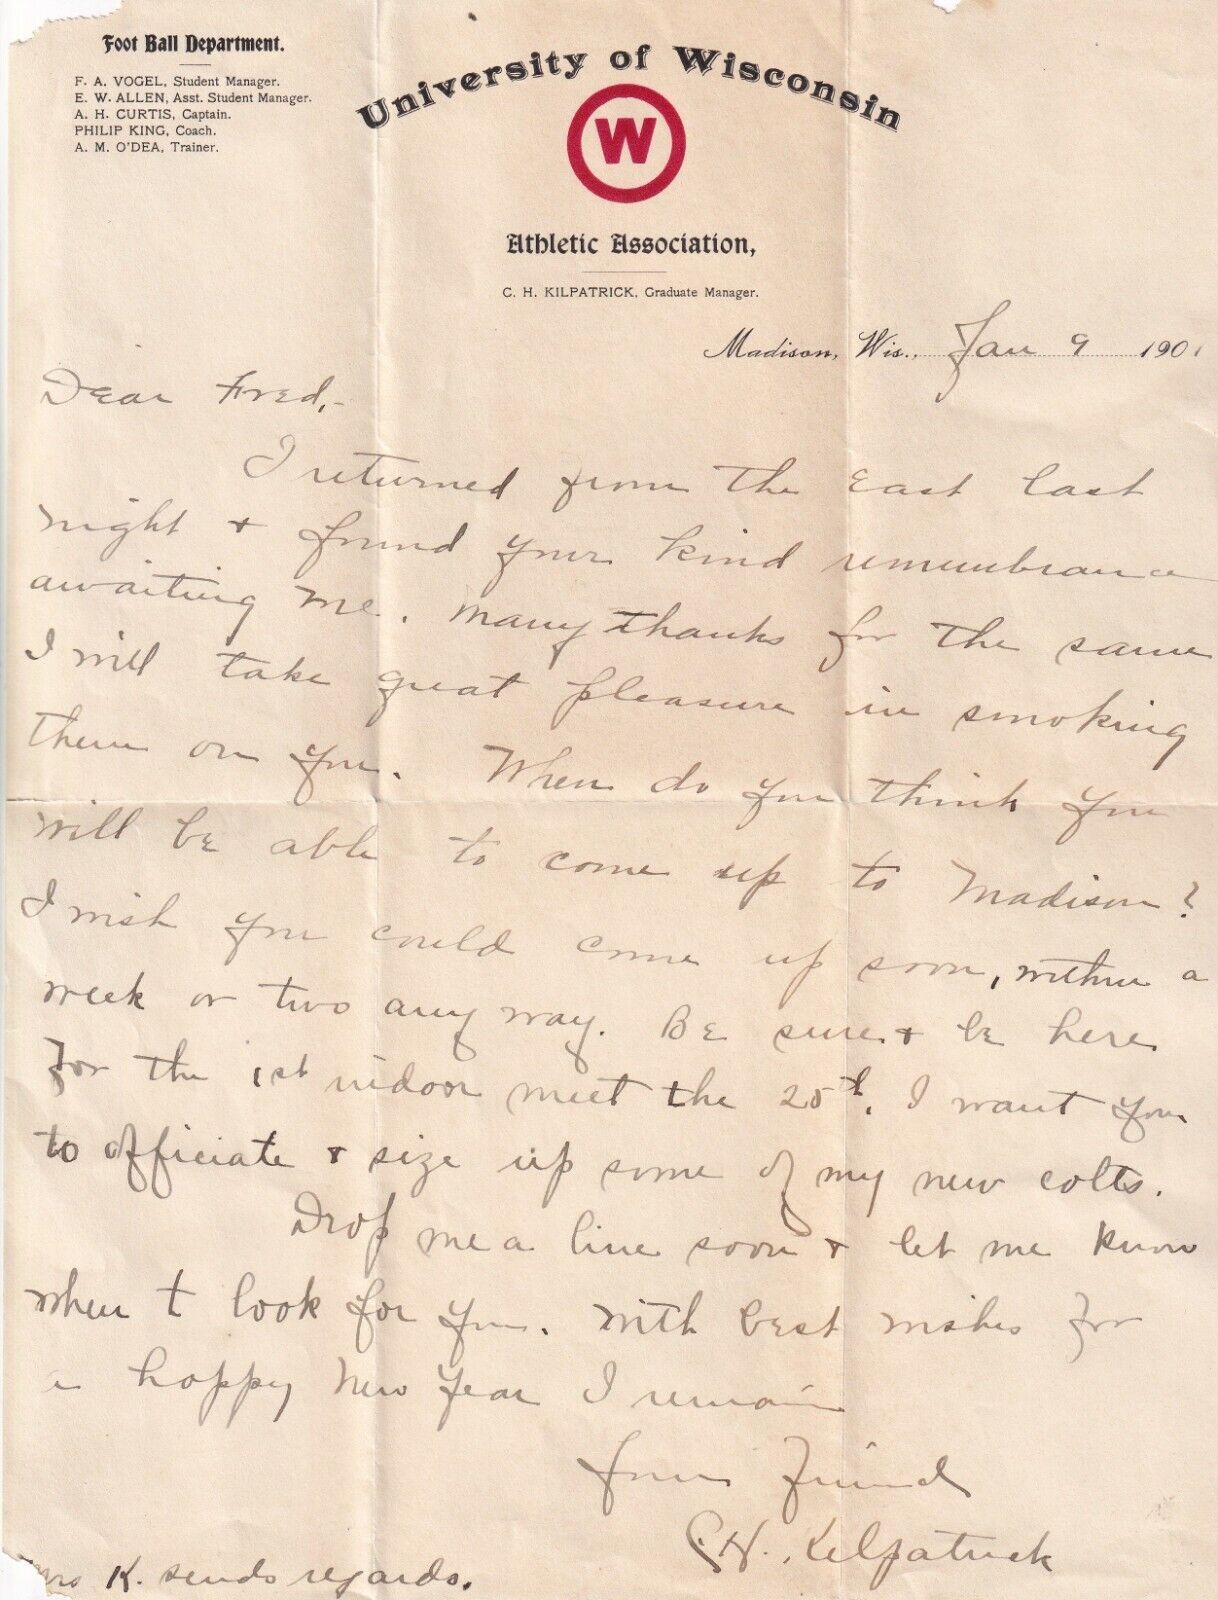 Foot Ball Department.
F. A. VOGEL, Student Manager.
E. W. ALLEN, Asst. Student Manager.
A. H. CURTIS, Captain.
PHILIP KING, Coach.
A. M. O'DEA, Trainer.
University of Wisconsin
W
Athletic Association,
C. H. KILPATRICK, Graduate Manager.
Madison, Wis., Jan 9 1901
Dear Fred,-
I returned from the East last
night + found your kind remembrance
awaiting me. Many thanks for the same
I will take great pleasure in smoking
them on you. When do you think you
will be able to come up to Madison?
I wish you could come up soon, within a
week or two any way. Be sure + be here
for the 1st indoor meet the 25th. I want you
to officiate + size up some of my new colts.
Drop me a line soon + let me know
when t look for you. With best wishes for
a happy New Year I remain
Your Friend
C.H. Kilpatrick
Mrs K. sends regards.